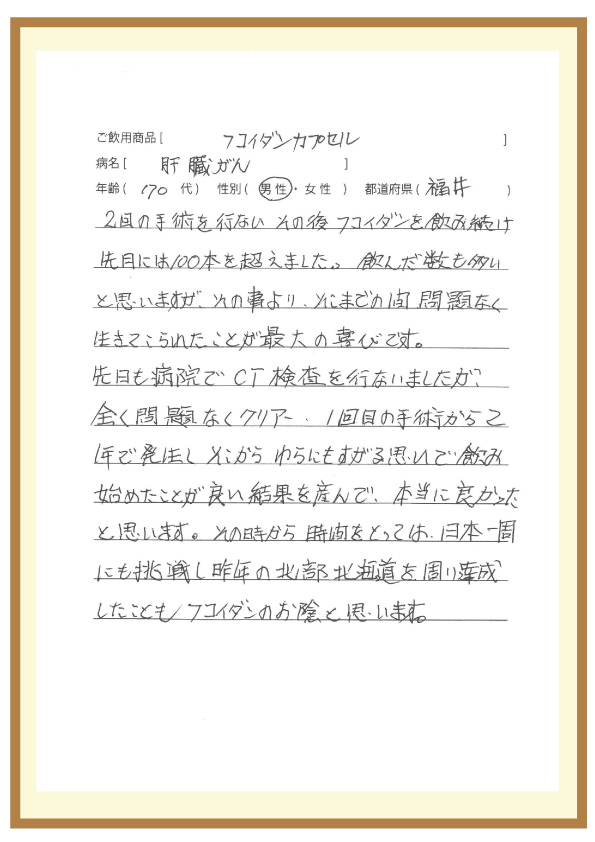 ご飲用商品 [ フコイダンカプセル ]
病名 [ 肝臓がん ]
年齢 ( 70 代 ) 性別 ( 男性・女性 ) 都道府県 ( 福井 )
2回の手術を行ない その後フコイダンを飲み続け
先日には100本を超えました。飲んだ数も多い
と思いますが、その事より、そこまでの間問題なく
生きてこられたことが最大の喜びです。
先日も病院でCT検査を行ないましたが、
全く問題なくクリアー、1回目の手術から2
年で発生し そこから わらにもすがる思いで飲み
始めたことが良い結果を産んで、本当に良かった
と思います。その時から時間をとっては、日本一周
にも挑戦し昨年の北部北海道を周り達成
したこともフコイダンのお陰と思います。